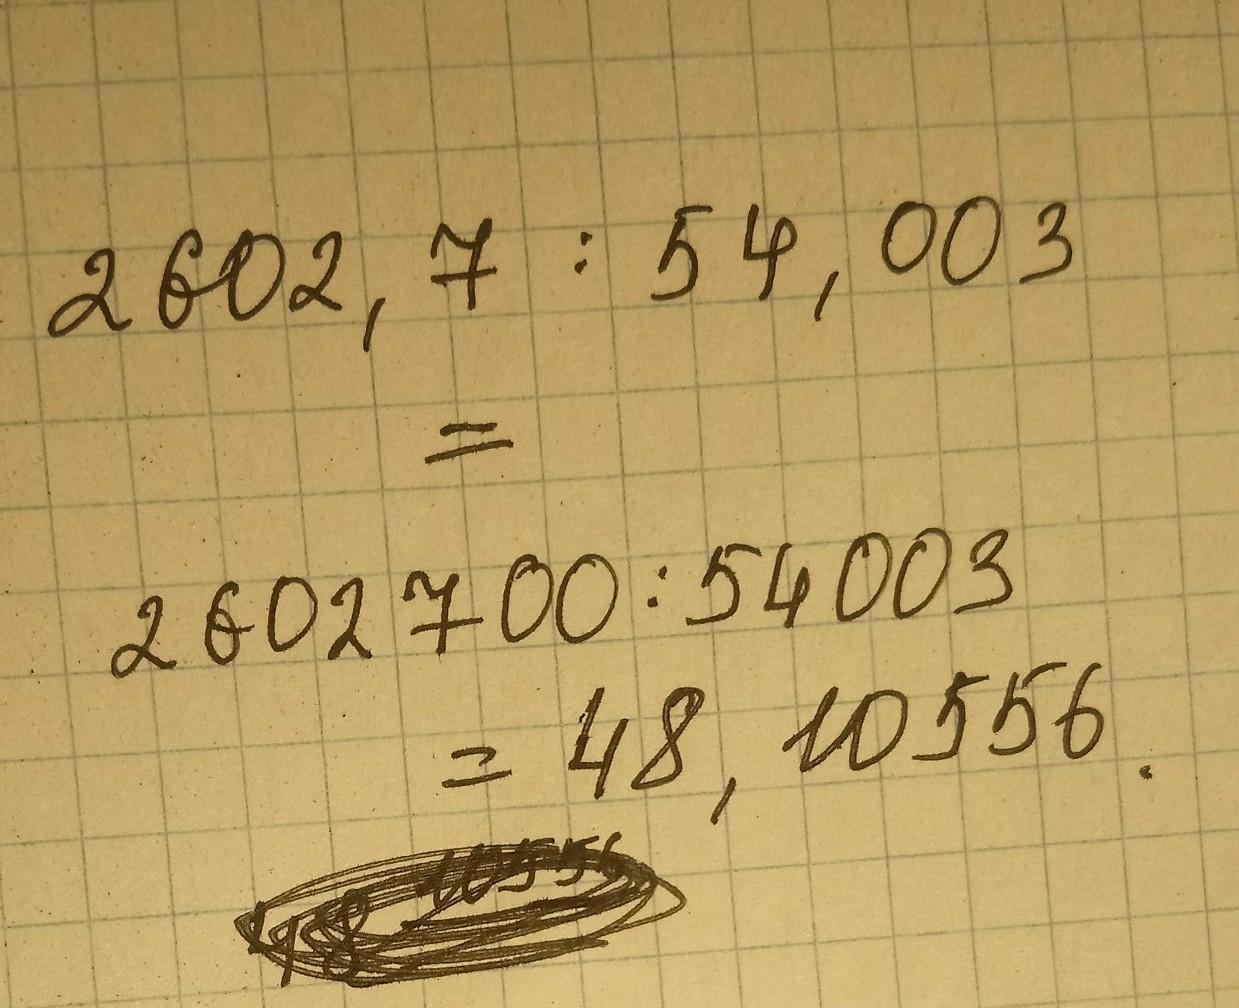 2602,7 : 54,003
=
2602700 : 54003
= 48,10556.